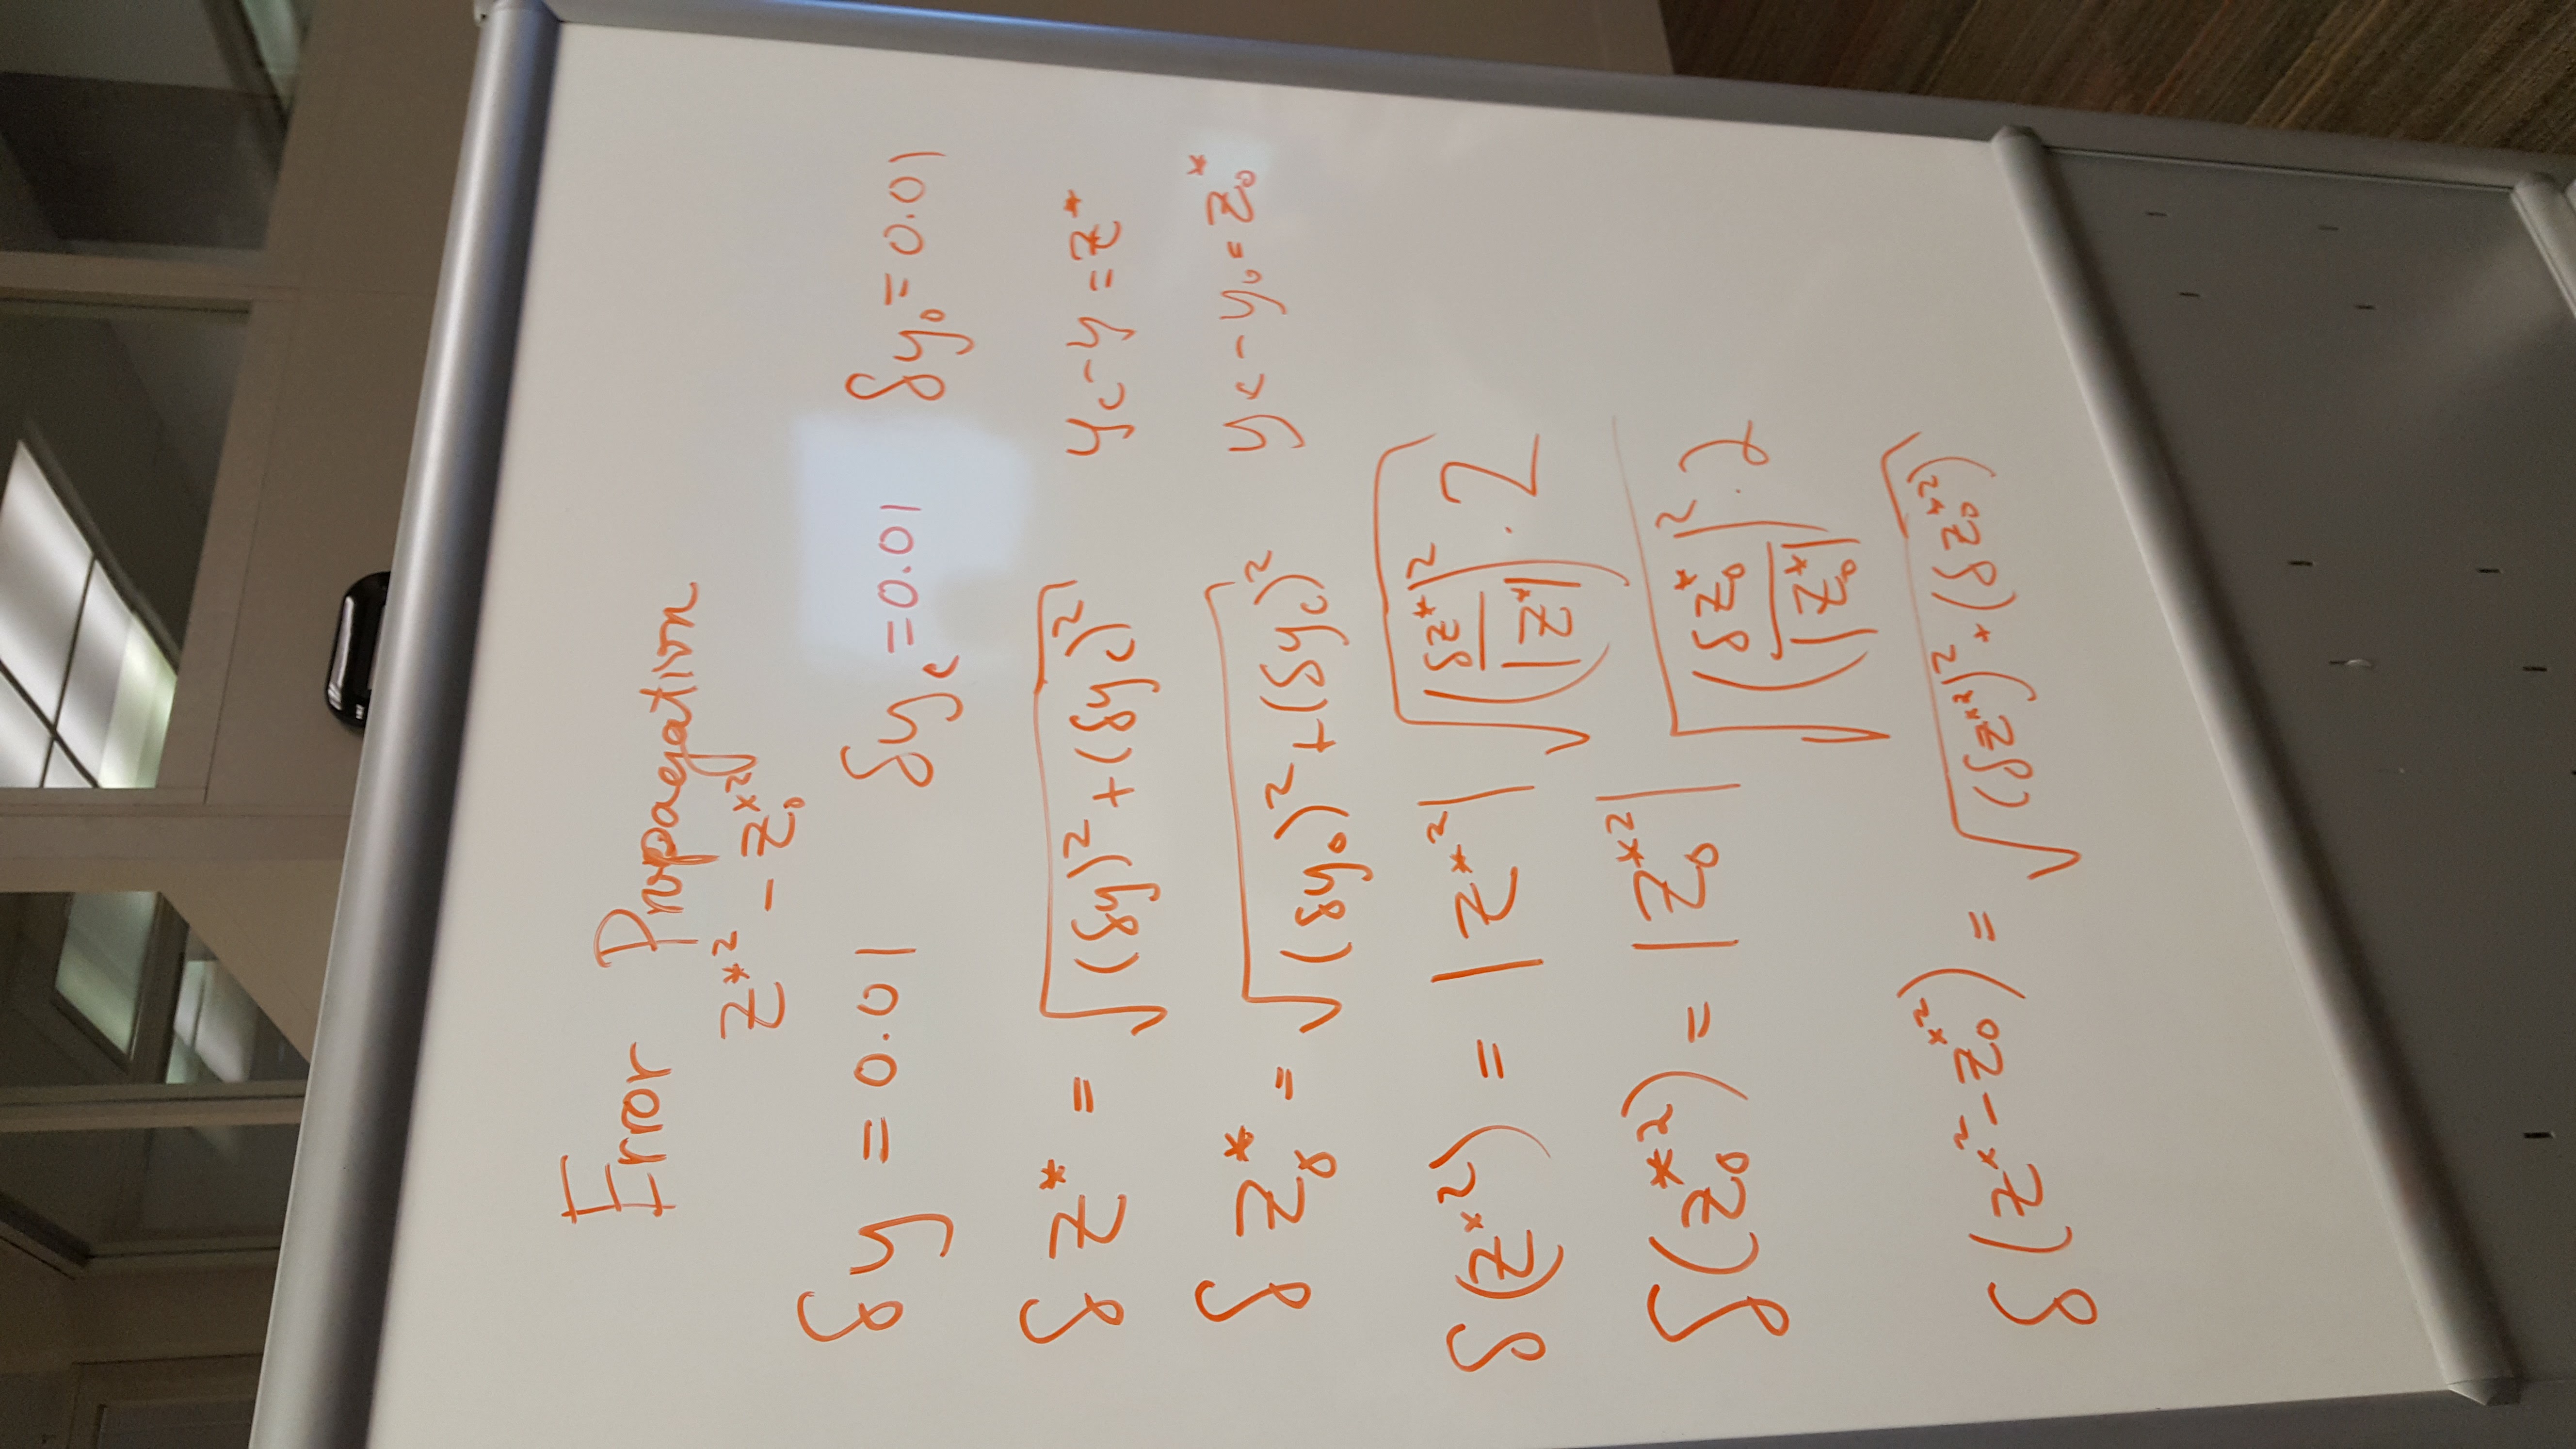 Error Propagation
z*² - z₀*²
δy = 0.01 δy_c = 0.01 δy₀ = 0.01
δz* = √((δy)² + (δy_c)²) y_c - y = z*
δz₀* = √((δy₀)² + (δy_c)²) y_c - y₀ = z₀*
δ(z*²) = |z*²| √((δz*/|z*|)² · 2)
δ(z₀*²) = |z₀*²| √((δz₀*/|z₀*|)² · 2)
δ(z*² - z₀*²) = √((δz*²)² + (δz₀*²))